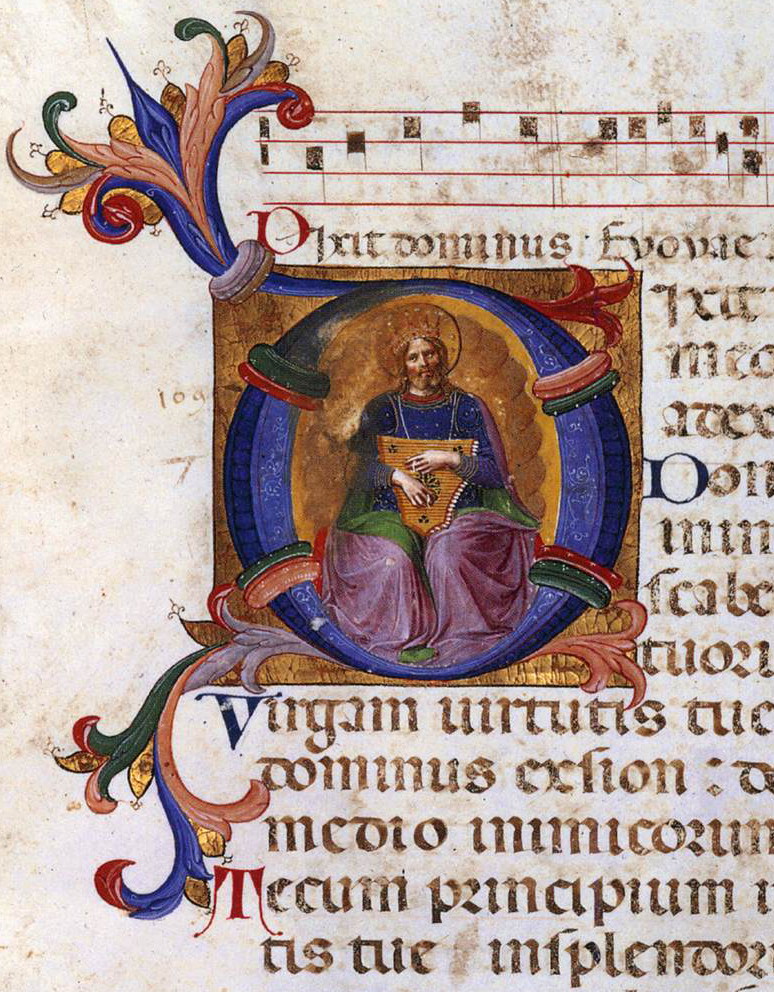 Dixit dominus : Evovae
Ixit
meo
adex
109
Don
inim
scabe
tuoru
Virgam uirtutis tue
dominus exsion : do
medio inimicorum
Tecum principium i
tis tue insplendori